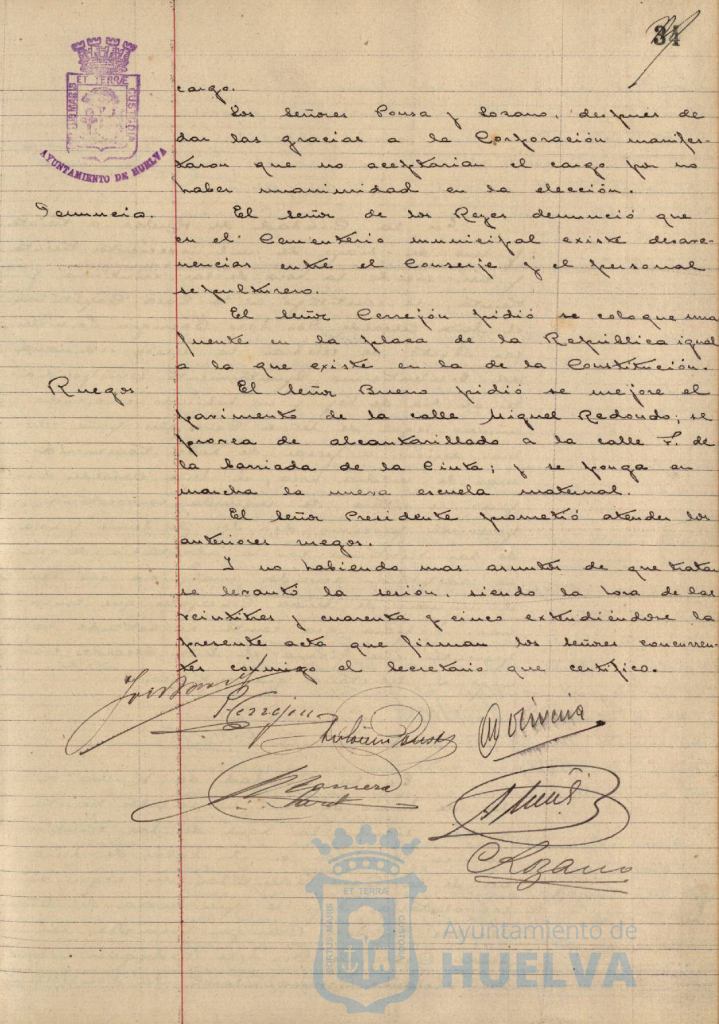 34
PORTUS MARIS ET TERRÆ CUSTODIA
AYUNTAMIENTO DE HUELVA
cargo.
Los Señores Ponsa y Lozano, después de
dar las gracias a la Corporación manifes-
taron que no aceptarian el cargo por no
haber unanimidad en la elección.
Denuncia.
El Señor de los Reyes denunció que
en el Cementerio municipal existe desave-
nencias entre el Conserje y el personal
sepulturero.
El Señor Cerrejón pidió se coloque una
fuente en la plaza de la República igual
a la que existe en la de la Constitución.
Ruegos
El Señor Bueno pidió se mejore el
pavimento de la calle Miguel Redondo; se
provea de alcantarillado a la calle F. de
la barriada de la Cinta; y se ponga en
marcha la nueva escuela maternal.
El Señor Presidente prometió atender los
anteriores ruegos.
Y no habiendo mas asuntos de que tratar
se levantó la sesión, siendo la hora de las
veintitres y cuarenta y cinco extendiéndose la
presente acta que firman los señores concurren-
tes conmigo el Secretario que certifico.
Cerrejon
Ponsa
C Lozano
PORTUS MARIS ET TERRÆ CUSTODIA
Ayuntamiento de
HUELVA